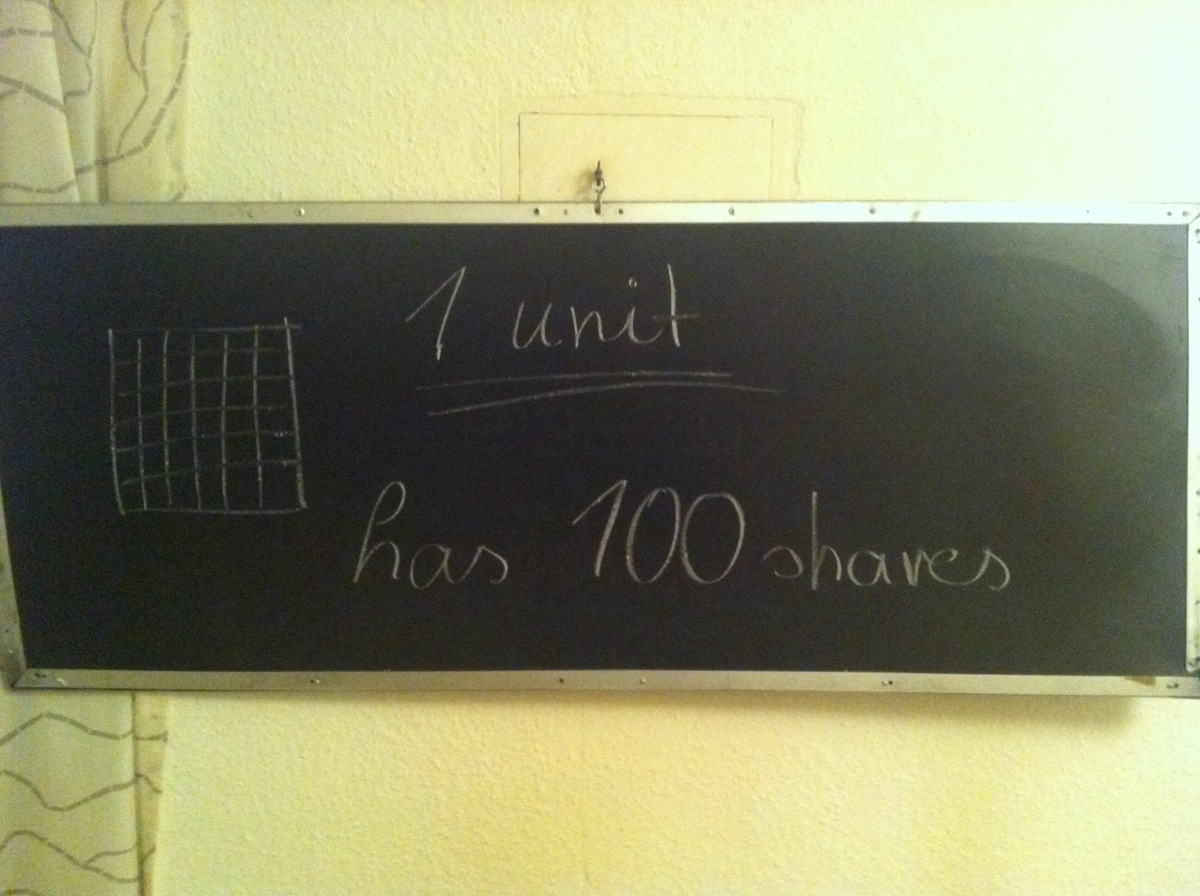 1 unit
has 100 shares